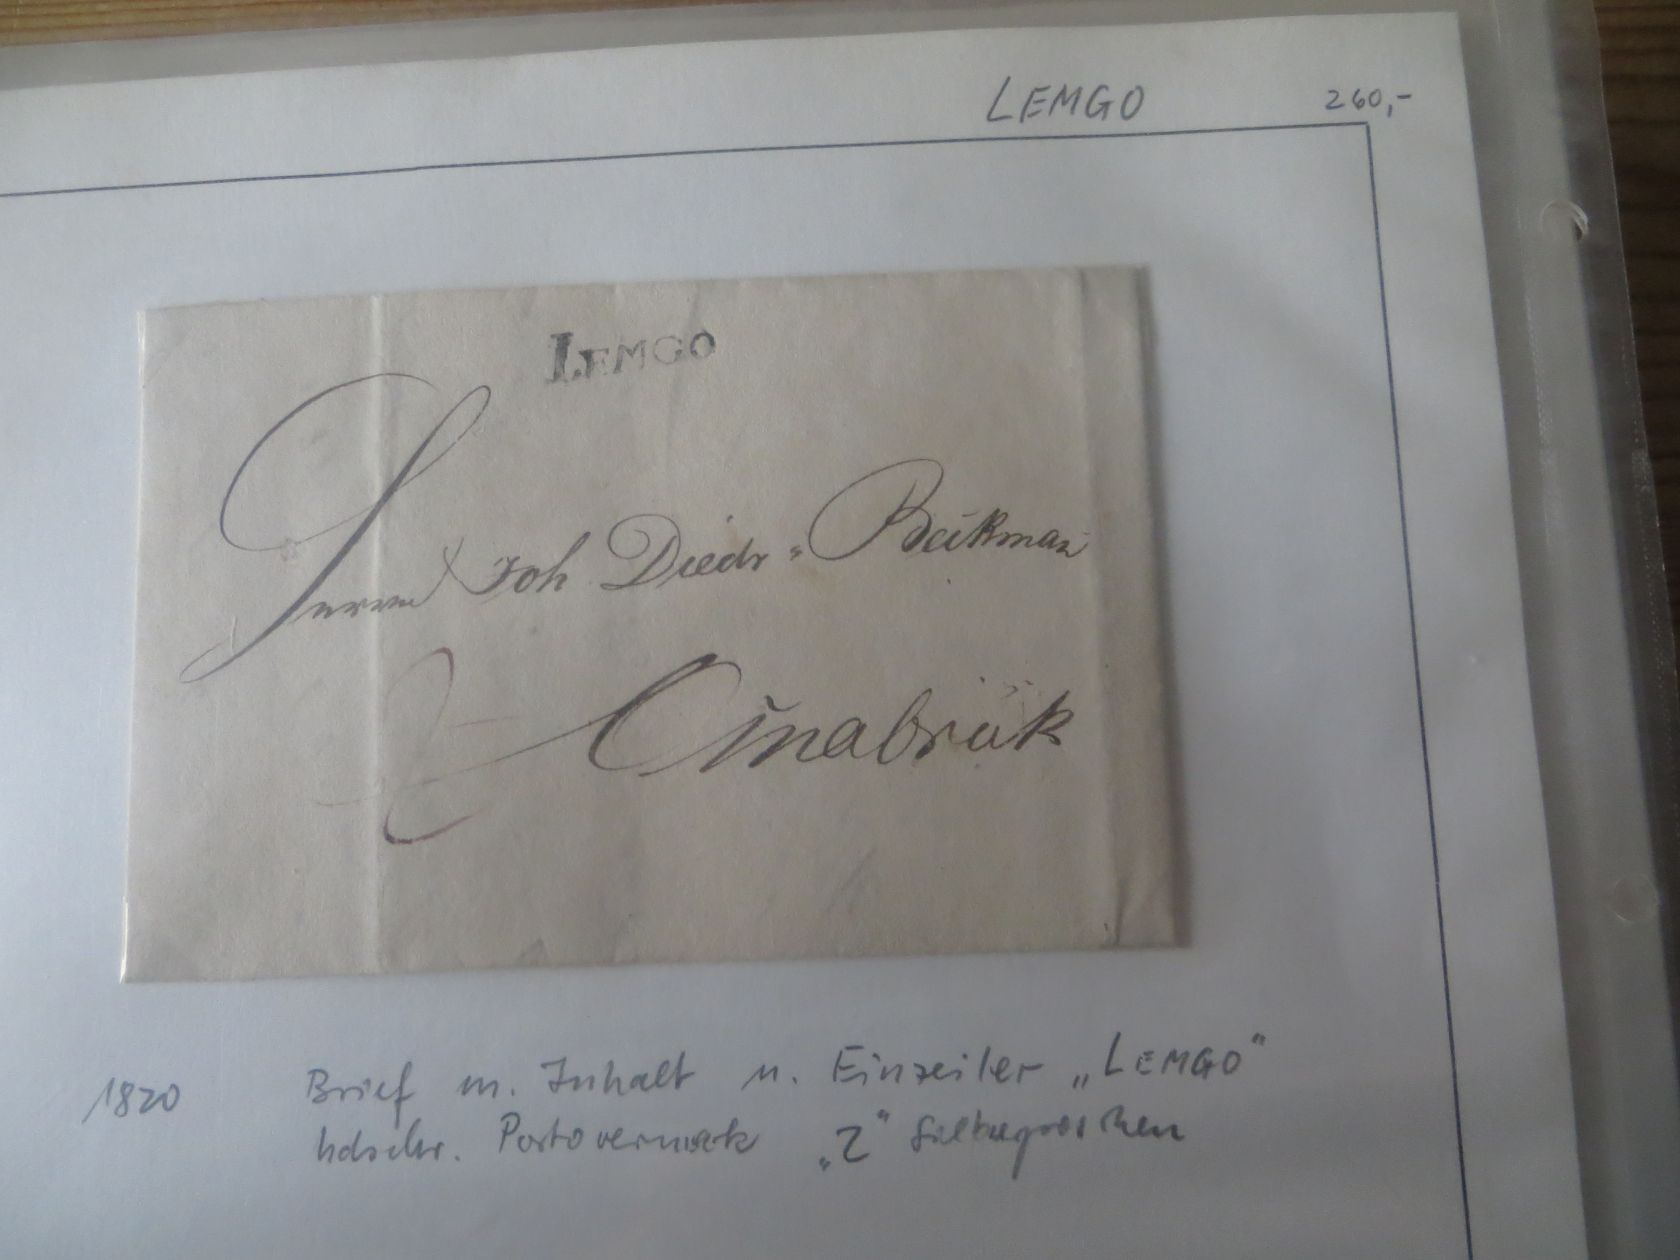 LEMGO 260,-
LEMGO
Herrn Joh Diedr. Beikman
2 Osnabrück
1820 Brief m. Inhalt u. Einzeiler „LEMGO"
hdschr. Portovermerk „2" Silbergroschen